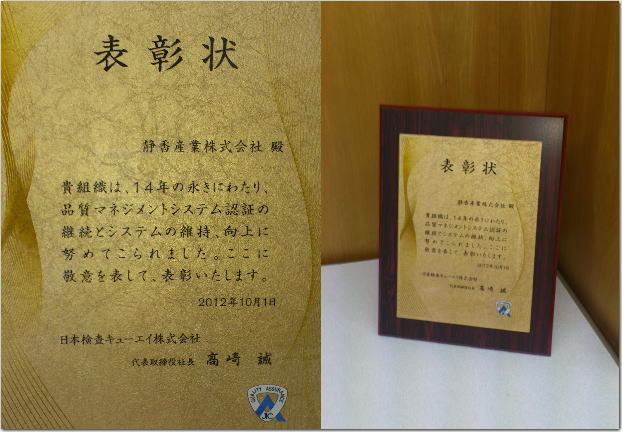 表彰状
静香産業株式会社 殿
貴組織は、14年の永きにわたり、
品質マネジメントシステム認証の
継続とシステムの維持、向上に
努めてこられました。ここに
敬意を表して、表彰いたします。
2012年10月1日
日本検査キューエイ株式会社
代表取締役社長 高崎 誠
QUALITY ASSURANCE
JIC
表彰状
静香産業株式会社 殿
貴組織は、14年の永きにわたり、
品質マネジメントシステム認証の
継続とシステムの維持、向上に
努めてこられました。ここに
敬意を表して、表彰いたします。
2012年10月1日
日本検査キューエイ株式会社
代表取締役社長 高崎 誠